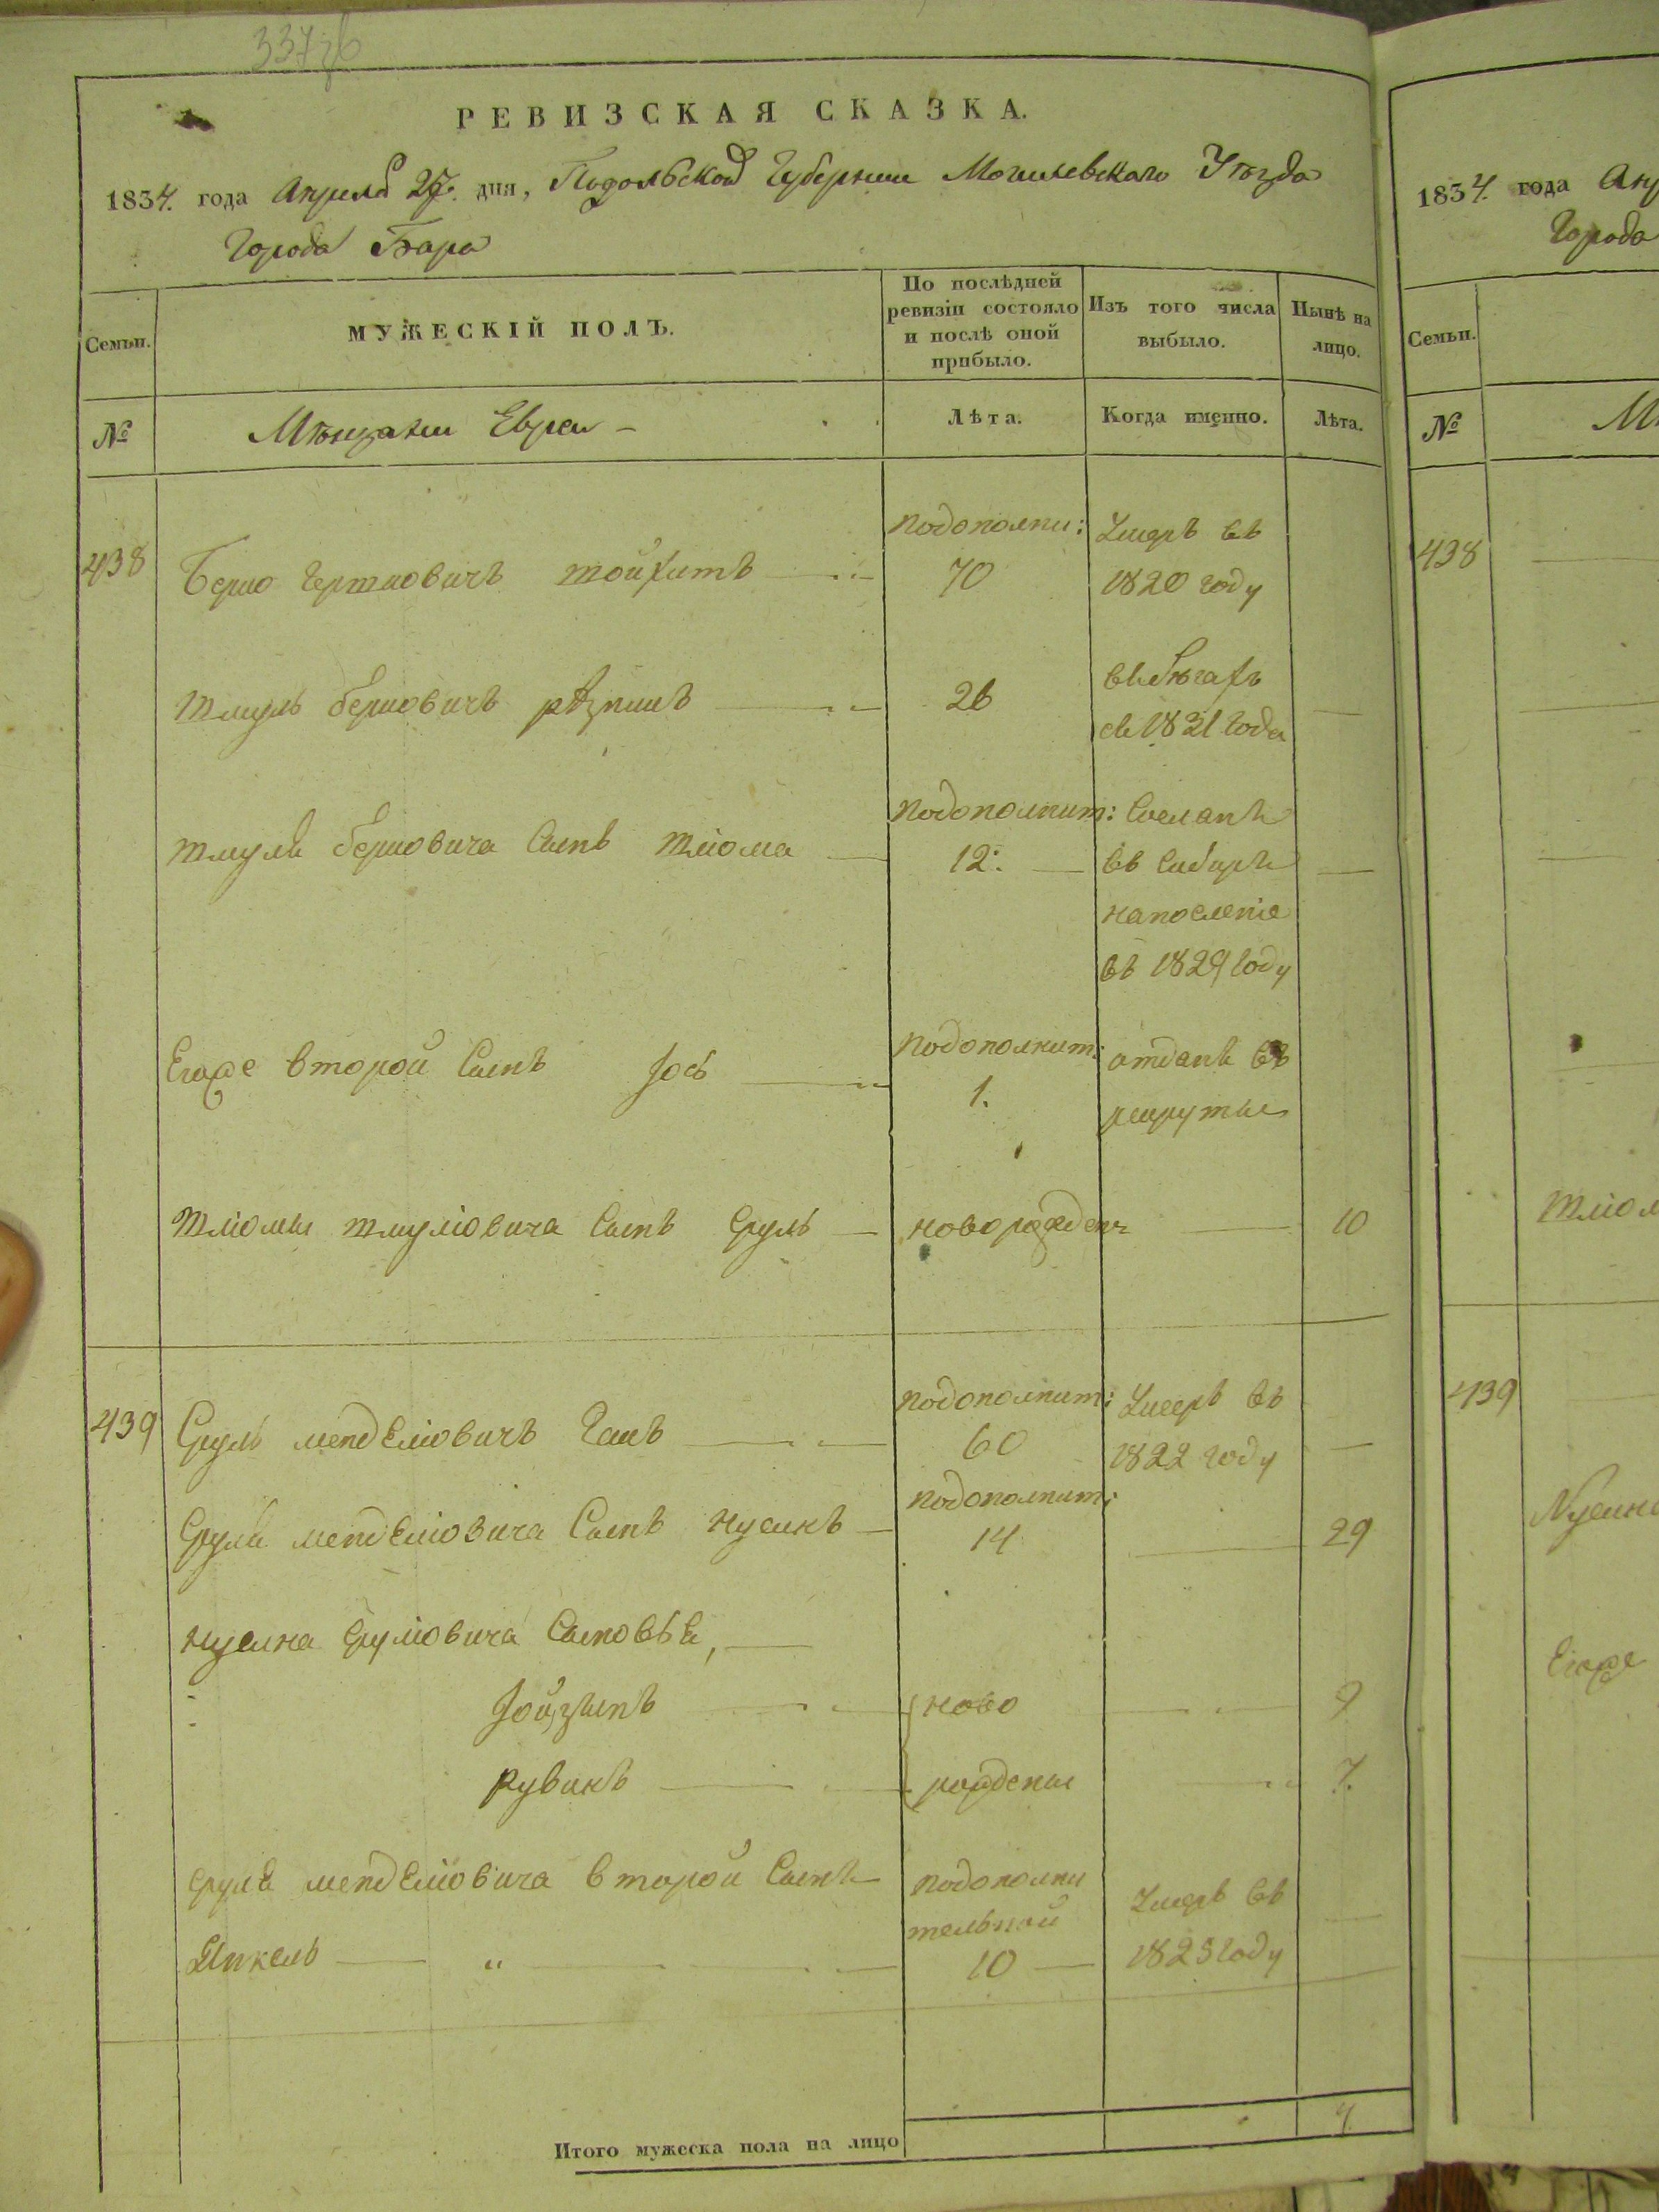 РЕВИЗСКАЯ СКАЗКА.
1834. года Апреля 27. дня, Подольской Губернии Могилевского Уѣзда
Города Бара
Семьи.
МУЖЕСКІЙ ПОЛЪ.
По послѣдней
ревизіи состояло
и послѣ оной
прибыло.
Изъ того числа
выбыло.
Нынѣ на
лицо.
№
Мѣщане Евреи -
Лѣта.
Когда именно.
Лѣта.
438
Берко
подополни:
70
Умеръ въ
1820 году
Шмуль Берковичъ
26
въ бѣгахъ
съ 1831 года
Шмуля Берковича Сынъ Шліома
подополнит:
12:
Сосланъ
въ Сибирь
на поселеніе
въ 1829 году
Егоже второй Сынъ Іось
подополнит:
1.
отданъ въ
рекруты
Шліомы Шмуліовича Сынъ Сруль
новорожденъ
10
439
Сруль Менделіовичъ
подополнит:
60
Умеръ въ
1822 году
Сруля Менделіовича Сынъ Нусинъ
подополнит:
14
29
Нусина Сруліовича Сыновья,
Іойзипъ
ново
9
Рувинъ
рождены
7.
Сруля Менделіовича второй Сынъ
Янкель
подополни
тельной
10
Умеръ въ
1825 году
Итого мужеска пола на лицо
4
1834. года Апр
Города
Семьи.
№
438
Шліом
439
Нусина
Егоже